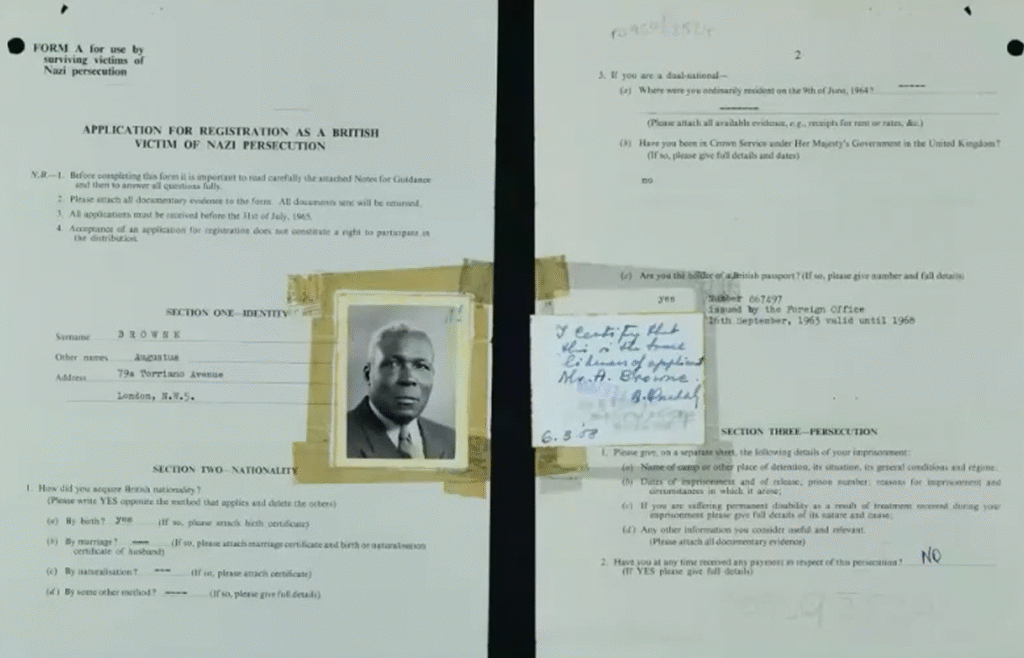 FORM A for use by
surviving victims of
Nazi persecution
APPLICATION FOR REGISTRATION AS A BRITISH
VICTIM OF NAZI PERSECUTION
N.B.—1. Before completing this form it is important to read carefully the attached Notes for Guidance
and then to answer all questions fully.
2. Please attach all documentary evidence to the form. All documents sent will be returned.
3. All applications must be received before the 31st of July, 1965.
4. Acceptance of an application for registration does not constitute a right to participate in
the distribution.
SECTION ONE—IDENTITY
Surname BROWNE
Other names Augustus
Address 79a Torriano Avenue
London, N.W.5.
SECTION TWO—NATIONALITY
1. How did you acquire British nationality?
(Please write YES opposite the method that applies and delete the others)
(a) By birth? yes (If so, please attach birth certificate)
(b) By marriage? ---- (If so, please attach marriage certificate and birth or naturalisation
certificate of husband)
(c) By naturalisation? ---- (If so, please attach certificate)
(d) By some other method? ---- (If so, please give full details)
2
3. If you are a dual-national—
(a) Where were you ordinarily resident on the 9th of June, 1964? ----
(Please attach all available evidence, e.g., receipts for rent or rates, &c.)
(b) Have you been in Crown Service under Her Majesty's Government in the United Kingdom?
(If so, please give full details and dates)
no
(c) Are you the holder of a British passport? (If so, please give number and full details)
yes Number 667497
issued by the Foreign Office
16th September, 1963 valid until 1968
I certify that
this is the true
likeness of applicant
Mr. A. Browne.
SECTION THREE—PERSECUTION
1. Please give, on a separate sheet, the following details of your imprisonment:
(a) Name of camp or other place of detention, its situation, its general conditions and régime;
(b) Dates of imprisonment and of release, prison number, reasons for imprisonment and
circumstances in which it arose;
(c) If you are suffering permanent disability as a result of treatment received during your
imprisonment please give full details of its nature and cause;
(d) Any other information you consider useful and relevant.
(Please attach all documentary evidence)
2. Have you at any time received any payment in respect of this persecution? NO
(If YES please give full details)